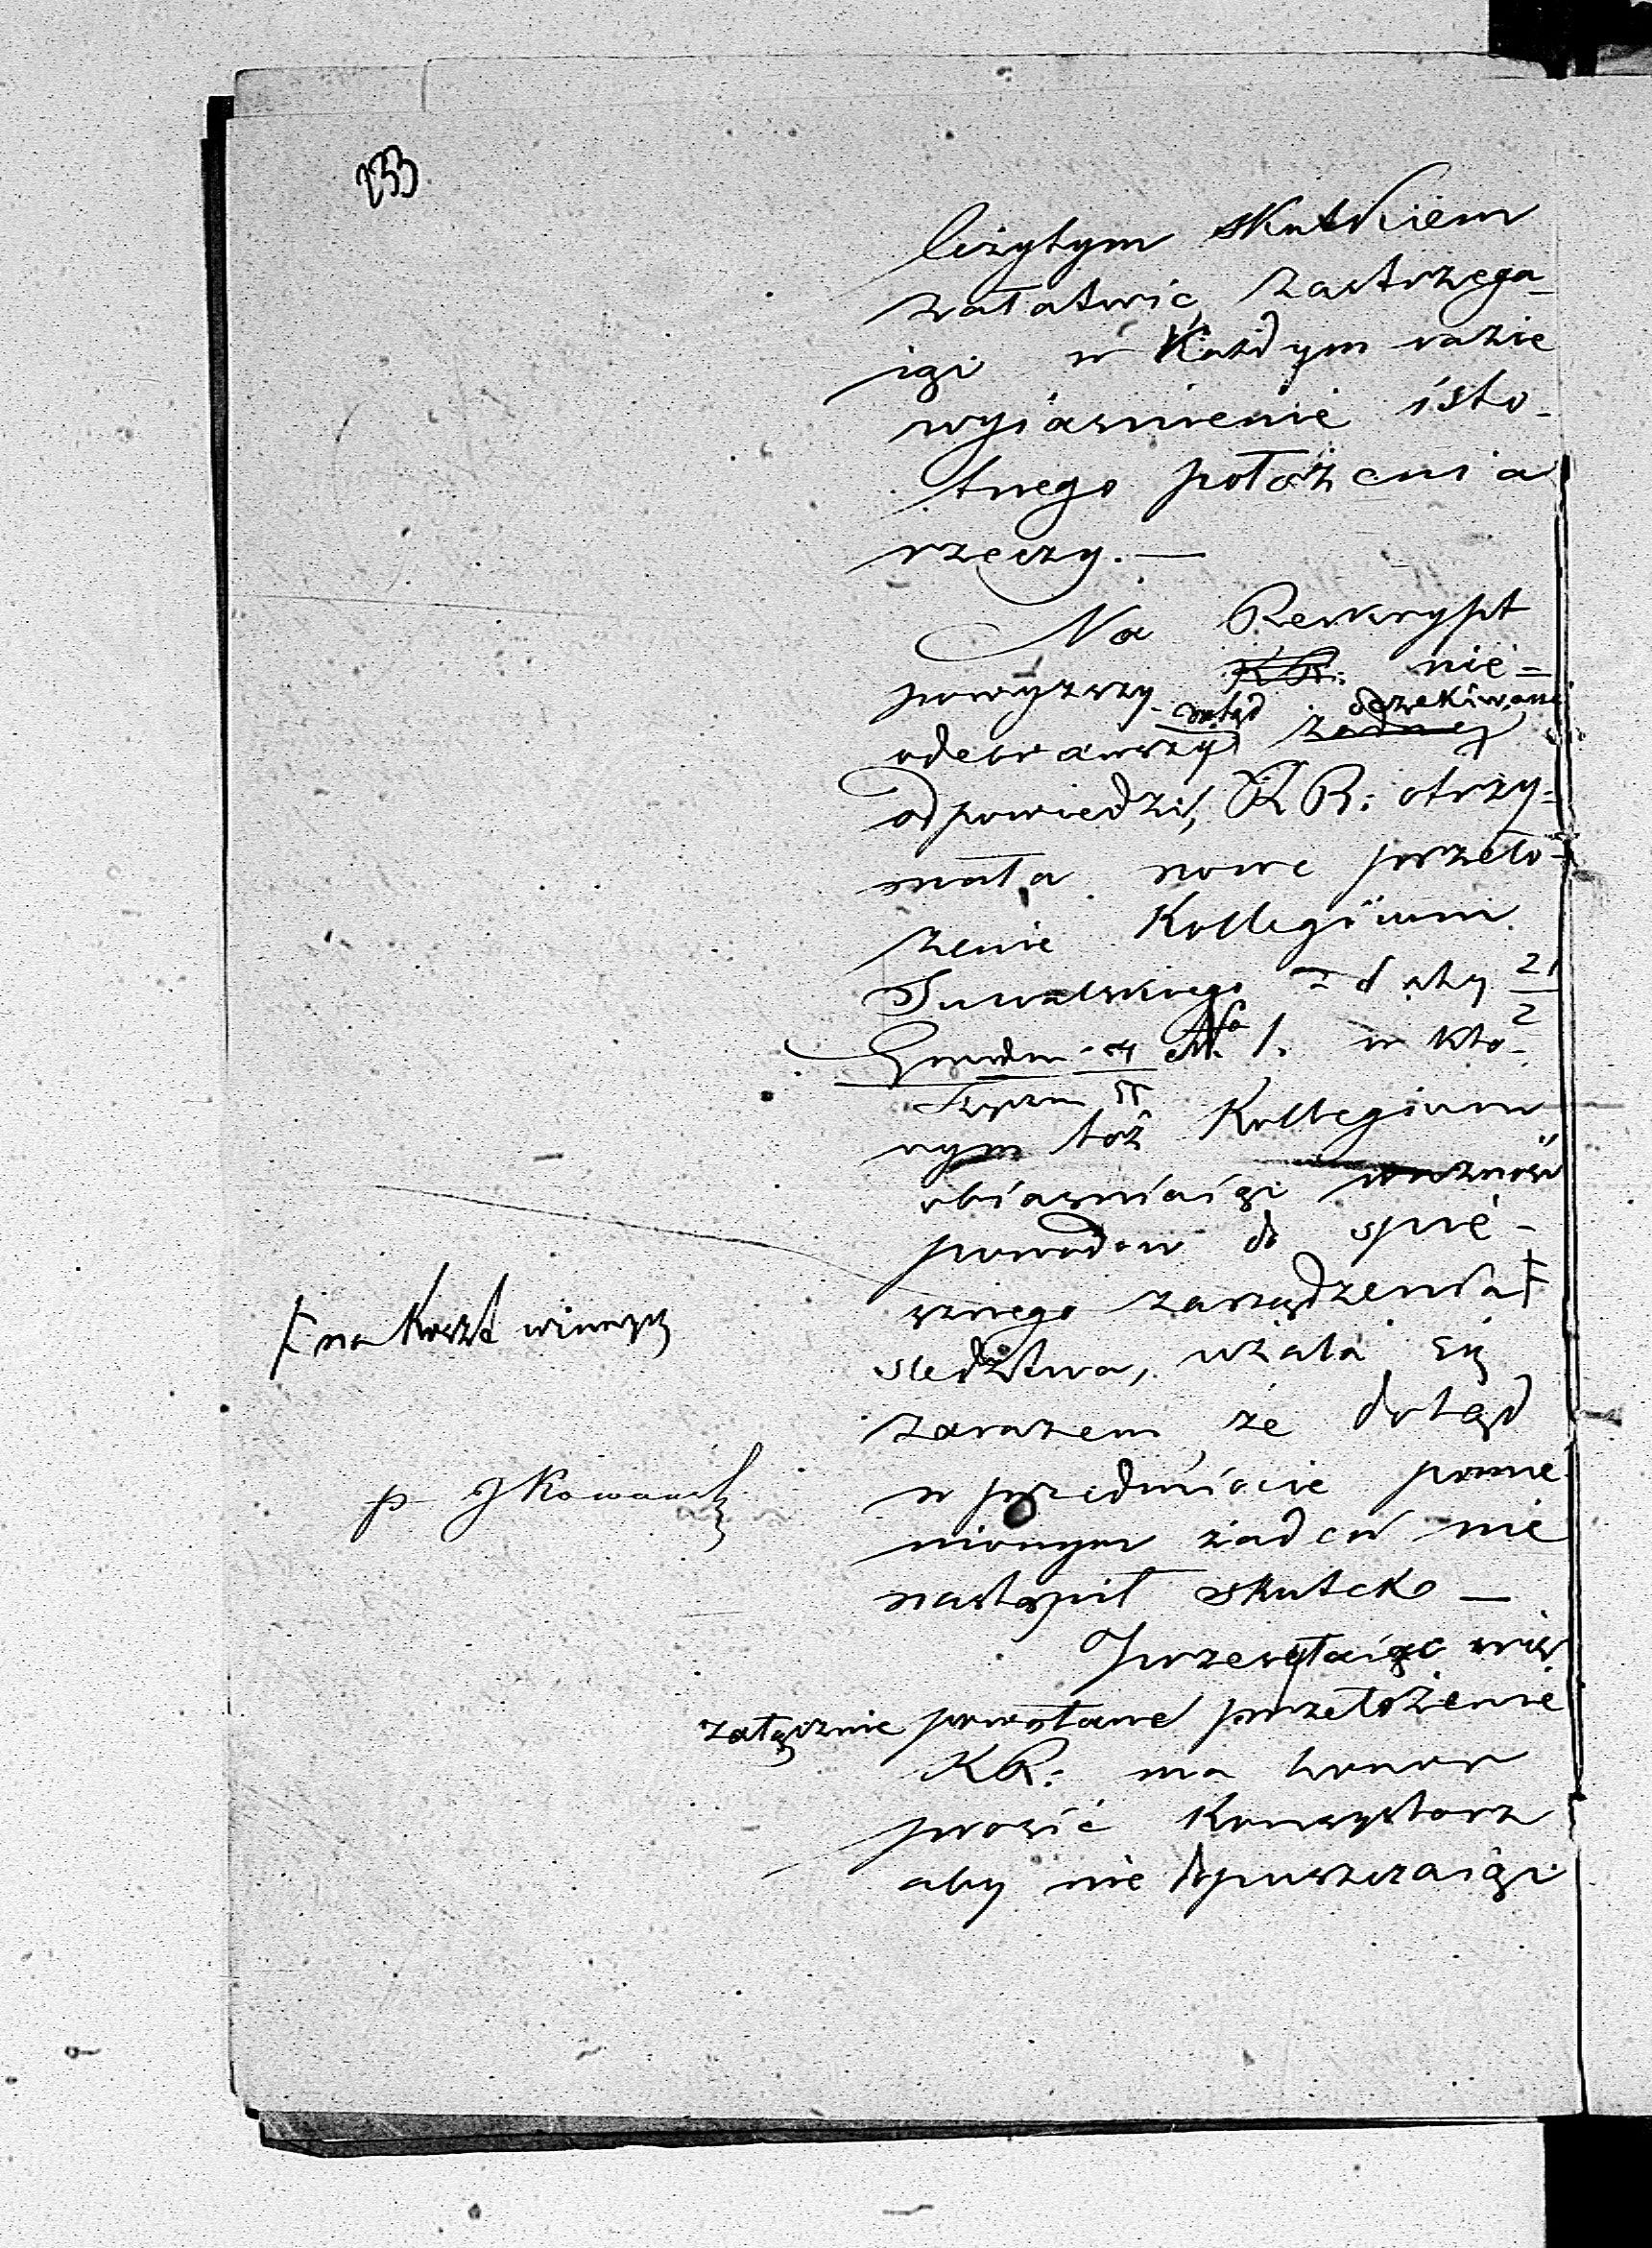 233
leżytym skutkiem
załatwić, zastrzega-
iąc w każdym razie
wyiaśnienie isto-
tnego położenia
rzeczy.—
Na Reskrypt
powyższy K.R: nie-
dotąd oczekiwaney
odebrawszy żadney
odpowiedzi, KR: otrzy-
mała nowe przeło-
żenie Kollegium
Suwalskiego z daty 21/2
Grudn: No 1. w któ-
Styczn
rym toż Kollegium
obiaśniaiąc
powodów do spie-
sznego zarządzenia Ŧ
śledztwa, użala się
zarazem że dotąd
w przedmiocie pomie
nionym żaden nie
nastąpił skutek —
Przesyłaiąc więc
załącznie powołane przełożenie
KR: ma honor
prosić Konsystorz
aby nie dopuszczaiąc
Ŧ na koszt winnych